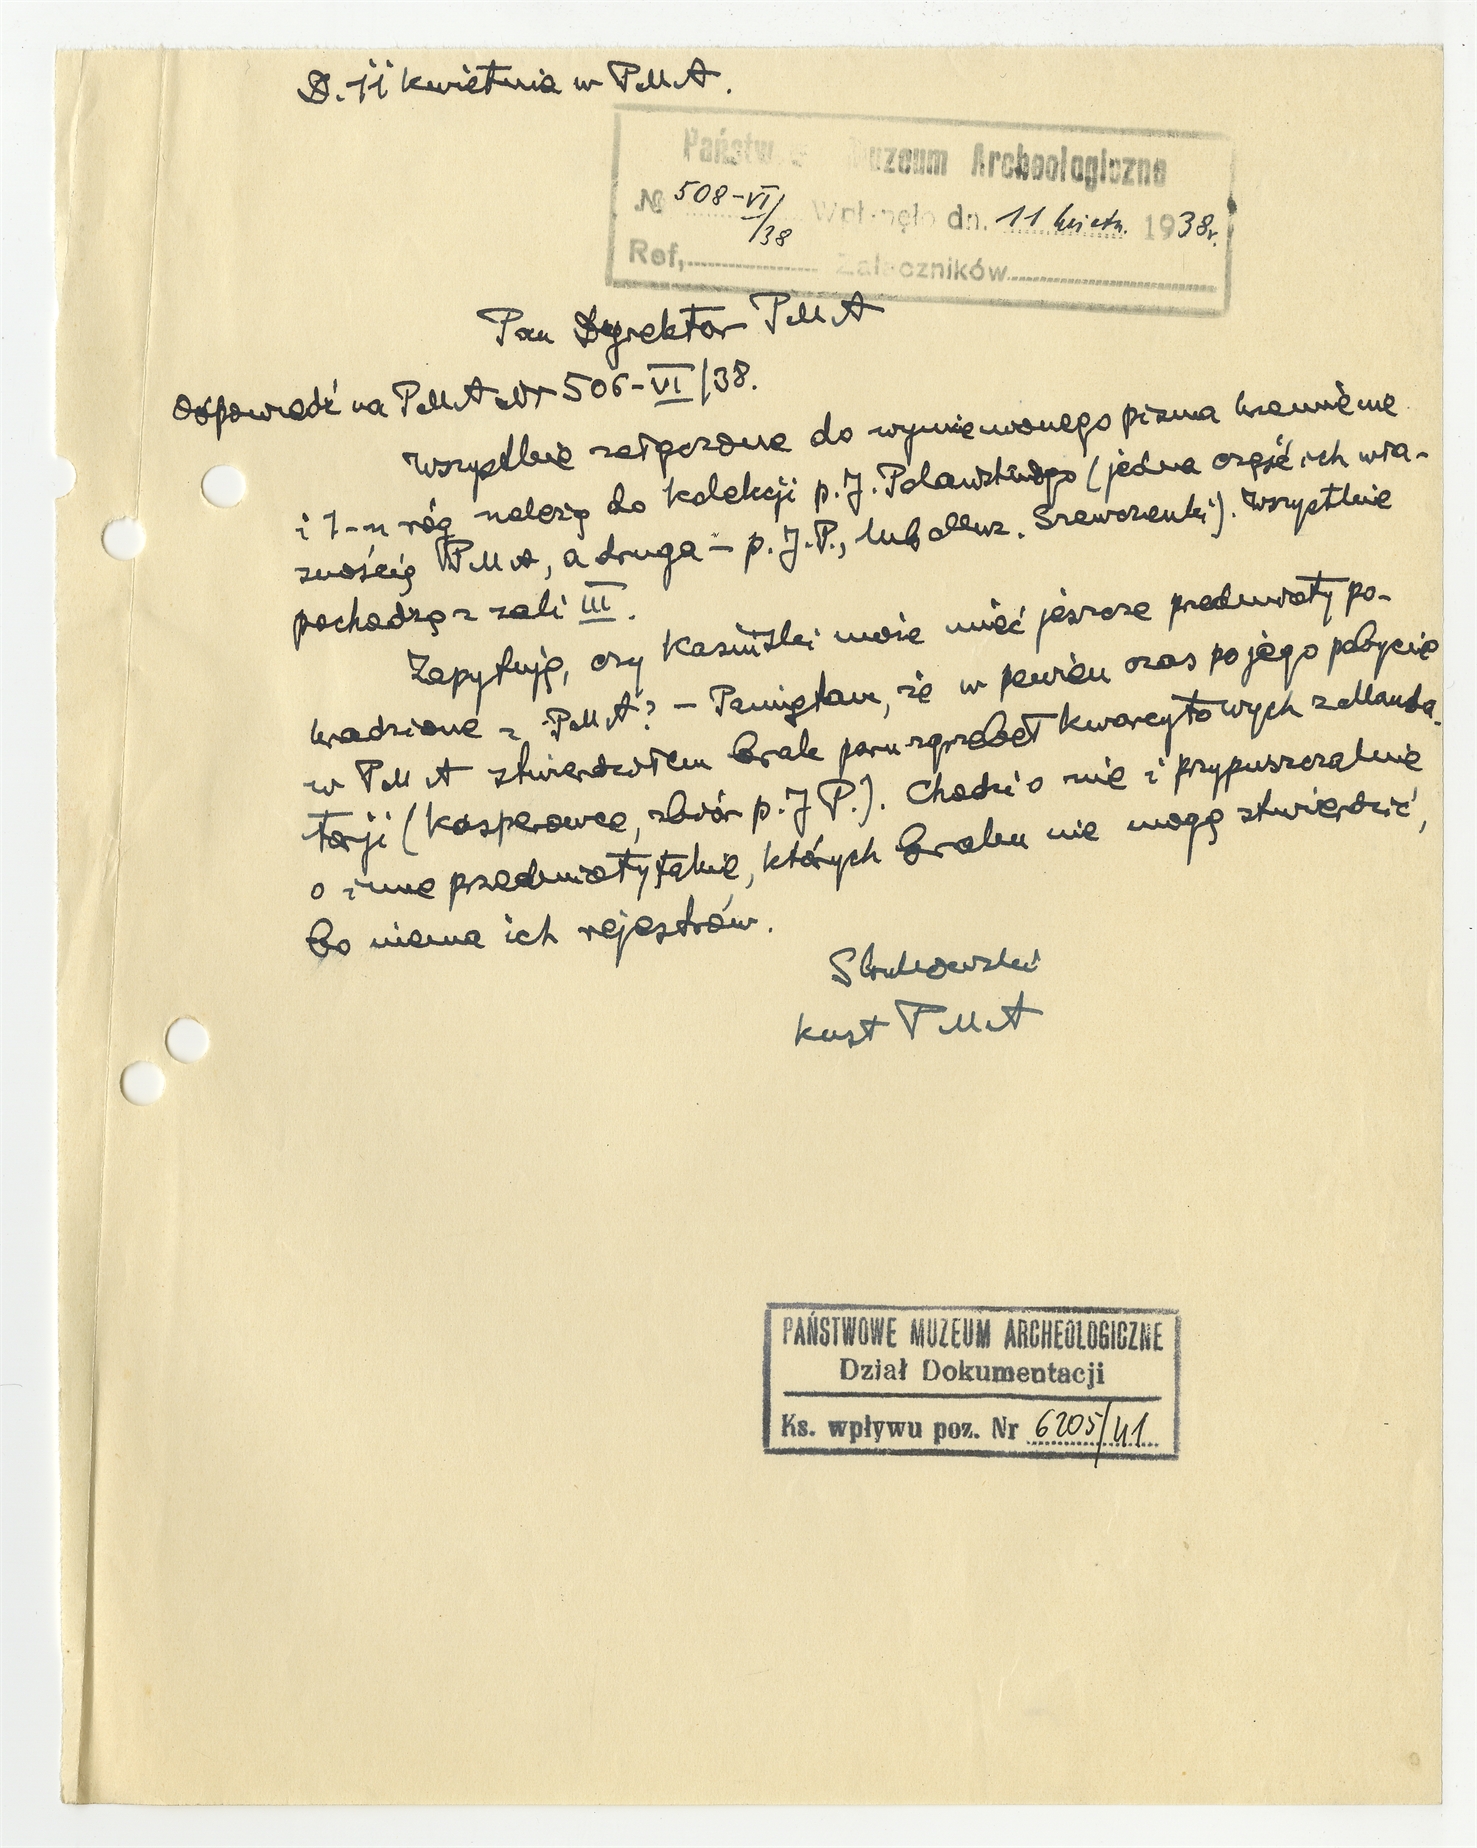 D. 11 kwietnia w PMA.
Państw Muzeum Archeologiczne
№ 508-VI/38 Wpłynęło dn. 11 kwietn. 1938r.
Ref, Załączników
Pan Dyrektor PMA
Odpowiedź na PMA Nr 506-VI/38.
Wszystkie załączone do wymienionego pisma krzemienie
i 1-n róg należą do kolekcji p. J. Polańskiego (jedna część ich wła-
snością PMA, a druga – p. J.P., lub Muz. Szewczenki). Wszystkie
pochodzą z sali III.
Zapytuję, czy może mieć jeszcze przedmioty po-
kradzione z PMA? – Pamiętam, że w pewien czas po jego pobycie
w PMA stwierdziłem brak paru zgrzebeł kwarcytowych z Manda-
torji (Kasperowce, zbiór p. J P.). Chodzi o nie i przypuszczalnie
o inne przedmioty takie, których braku nie mogę stwierdzić,
bo niema ich rejestrów.
SKrukowski
kust PMA
PAŃSTWOWE MUZEUM ARCHEOLOGICZNE
Dział Dokumentacji
Ks. wpływu poz. Nr 6205/41